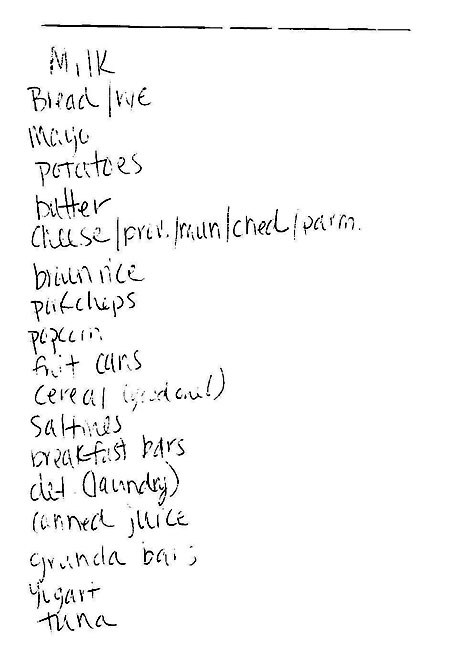 Milk
Bread/rye
mayo
potatoes
butter
cheese/prov./mun/ched/parm.
brown rice
pot.chips
popcorn
fruit cans
cereal (good one!)
Saltines
breakfast bars
det. (laundry)
canned juice
granola bars
yogart
tuna